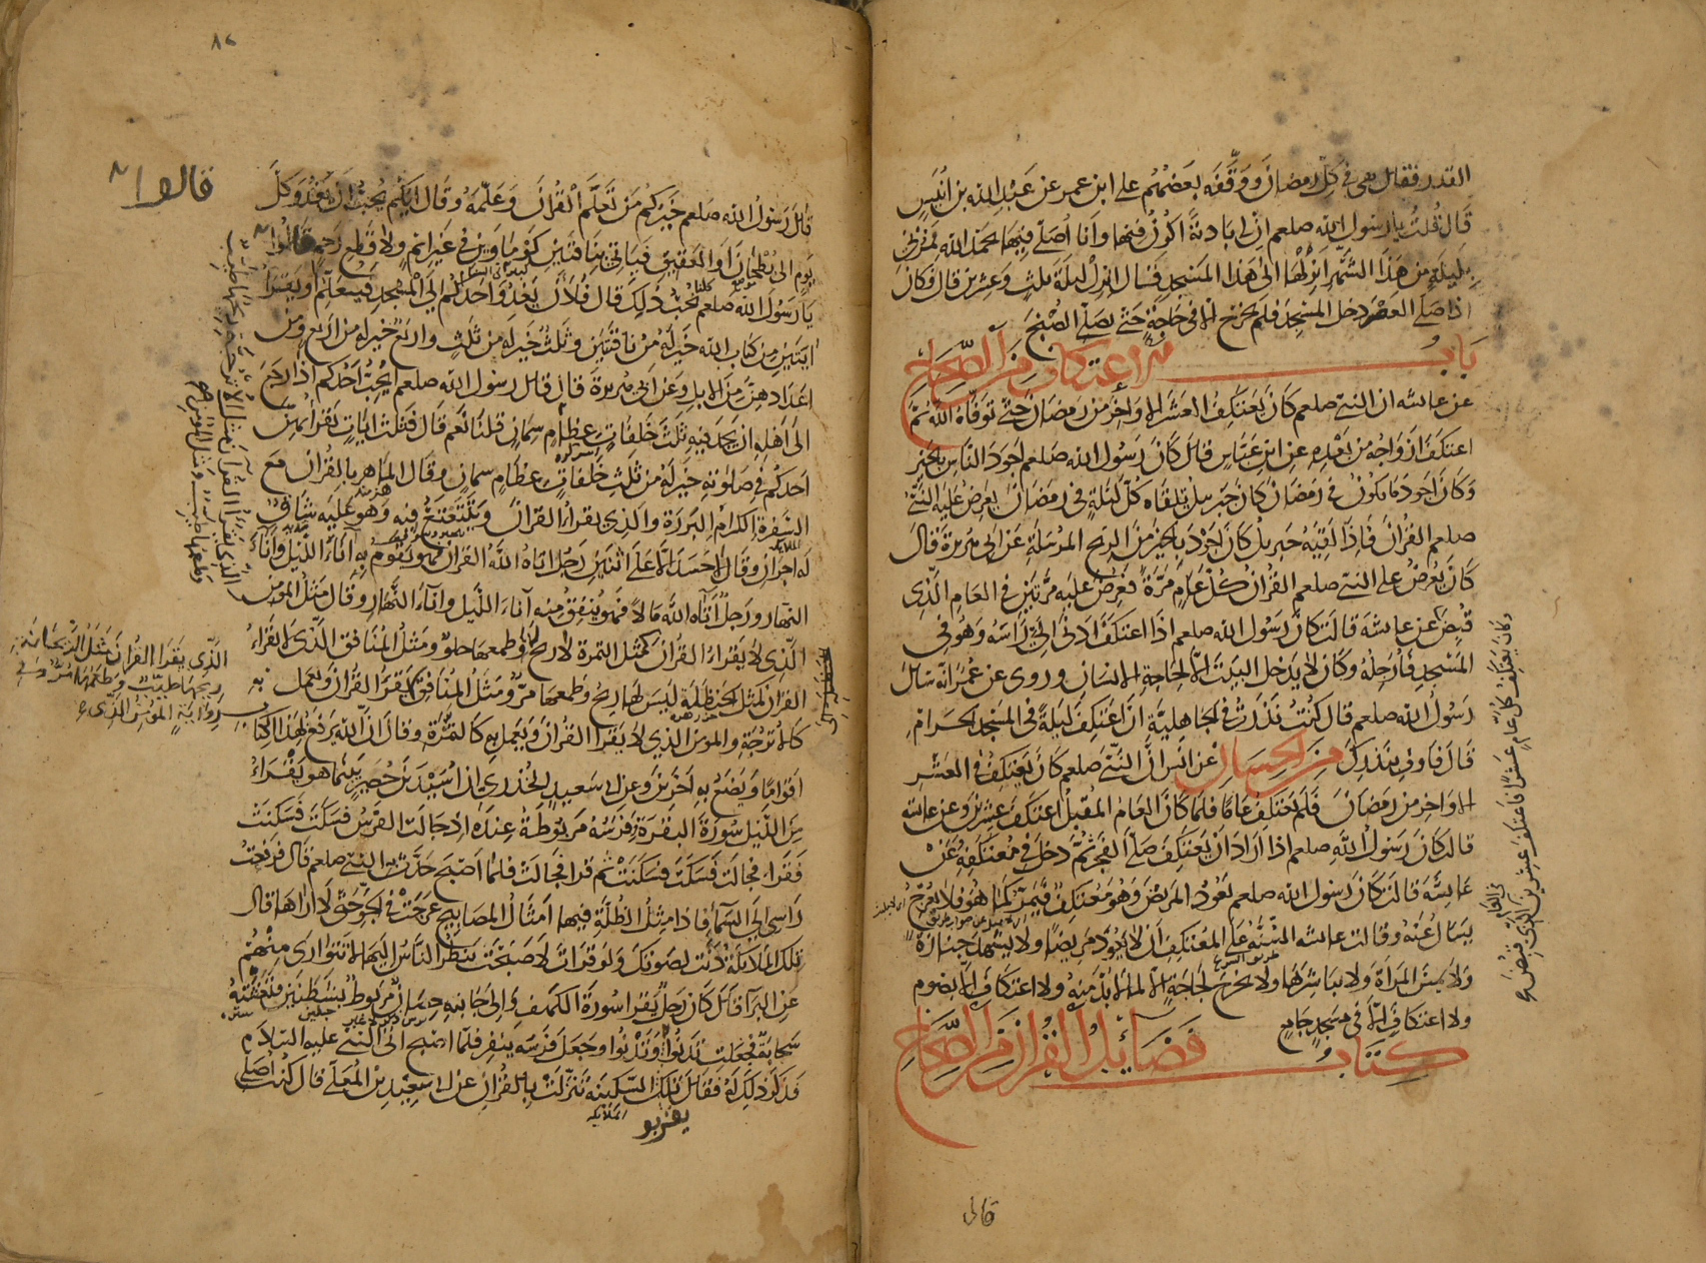 القدر فقال هي في كل رمضان ووقفه بعضهم على ابن عمر عن عبد الله بن انيس
قال قلت يا رسول الله صلعم ان لي بادية اكون فيها وانا اصلي فيها بحمد الله فمرني
بليلة من هذا الشهر انزلها الى هذا المسجد فقال انزل ليلة ثلث وعشرين قال فكان
اذا صلى العصر دخل المسجد فلم يخرج الا في حاجة حتى يصلي الصبح
باب الاعتكاف من الصحاح
عن عائشه ان النبي صلعم كان يعتكف العشر الاواخر من رمضان حتى توفاه الله ثم
اعتكف ازواجه من بعده عن ابن عباس قال كان رسول الله صلعم اجود الناس بالخير
وكان اجود ما يكون في رمضان كان جبريل يلقاه كل ليلة في رمضان يعرض عليه النبي
صلعم القرآن فاذا لقيه جبريل كان اجود بالخير من الريح المرسلة عن ابي هريرة قال
كان يعرض على النبي صلعم القرآن كل عام مرة فعرض عليه مرتين في العام الذي
قبض عن عائشة قالت كان رسول الله صلعم اذا اعتكف ادنى الي راسه وهو في
المسجد فارجله وكان لا يدخل البيت الا لحاجة الانسان وروى عن عمر انه سال
رسول الله صلعم قال كنت نذرت في الجاهلية ان اعتكف ليلة في المسجد الحرام
قال فاوف بنذرك من الحسان عن انس ان النبي صلعم كان يعتكف في العشر
الاواخر من رمضان فلم يعتكف عاما فلما كان العام المقبل اعتكف عشرين وعن عائشة
قالت كان رسول الله صلعم اذا اراد ان يعتكف صلى الفجر ثم دخل في معتكفه عن
عايشه قالت كان رسول الله صلعم يعود المريض وهو معتكف فيمر كما هو فلا يعرج
يسال عنه وقالت عائشه السنة على المعتكف ان لا يعود مريضا ولا يشهد جنازة
ولا يمس المراة ولا يباشرها ولا يخرج لحاجة الا لما لا بد منه ولا اعتكاف الا بصوم
ولا اعتكاف الا في مسجد جامع
كتاب فضائل القرآن من الصحاح
وكان يعتكف كل عام عشرا فاعتكف عشرين في العام الذي قبض
قال
٨٢
قالوا
قال رسول الله صلعم خيركم من تعلم القرآن وعلمه وقال ايكم يحب ان يغدو كل
يوم الى بطحان او العقيق فياتي بناقتين كوماوين في غير اثم ولا قطع رحم قالوا
يا رسول الله صلعم كلنا نحب ذلك قال فلان يغدو احدكم الى المسجد فيتعلم او يقرا
ايتين من كتاب الله خير له من ناقتين وثلث خير له من ثلث واربع خير له من اربع ومن
اعدادهن من الابل وعن ابي هريرة قال قال رسول الله صلعم ايحب احدكم اذا رجع
الى اهله ان يجد فيه ثلث خلفات عظام سمان قلنا نعم قال فثلث ايات يقرا بهن
احدكم في صلوته خير له من ثلث خلفات عظام سمان وقال الماهر بالقران مع
السفرة الكرام البررة والذي يقرا القران ويتتعتع فيه وهو عليه شاق
له اجران وقال لا حسد الا على اثنين رجل اتاه الله القران فهو يقوم به آناء الليل وآناء
النهار ورجل آتاه الله مالا فهو ينفق منه آناء الليل وآناء النهار وقال مثل المؤمن
الذي لا يقرا القران كمثل التمرة لا ريح لها وطعمها حلو ومثل المنافق الذي لا يقرا
القران كمثل الحنظلة ليس لها ريح وطعمها مر ومثل المنافق
كالاترجة والمؤمن الذي لا يقرا القران ويعمل به كالتمرة وقال ان الله يرفع بهذا الكتاب
اقواما ويضع به اخرين وعن ابي سعيد الخدري ان اسيد بن حضير بينما هو يقراء
من الليل سورة البقرة وفرسه مربوطة عنده اذ جالت الفرس فسكت فسكنت
فقراء فجالت فسكت فسكنت ثم قرا فجالت فلما اصبح حدث النبي صلعم قال فرفعت
راسي الى السماء فاذا مثل الظلة فيها امثال المصابيح عرجت في الجو حتى لا اراها قال
تلك الملائكة دنت لصوتك ولو قرات لاصبحت ينظر الناس اليها لا تتوارى منهم
عن البراء قال كان رجل يقرا سورة الكهف والى جانبه حصان مربوط بشطنين فتغشته
سحابة فجعلت تدنوا وتدنوا وجعل فرسه ينفر فلما اصبح اتى النبي عليه السلام
فذكر ذلك له فقال تلك السكينة تنزلت بالقرآن عن ابي سعيد بن المعلى قال كنت اصلي
الذي يقرا القران مثل الريحانة
ريحها طيب وطعمها مر وفي
رواية المؤمن الذي